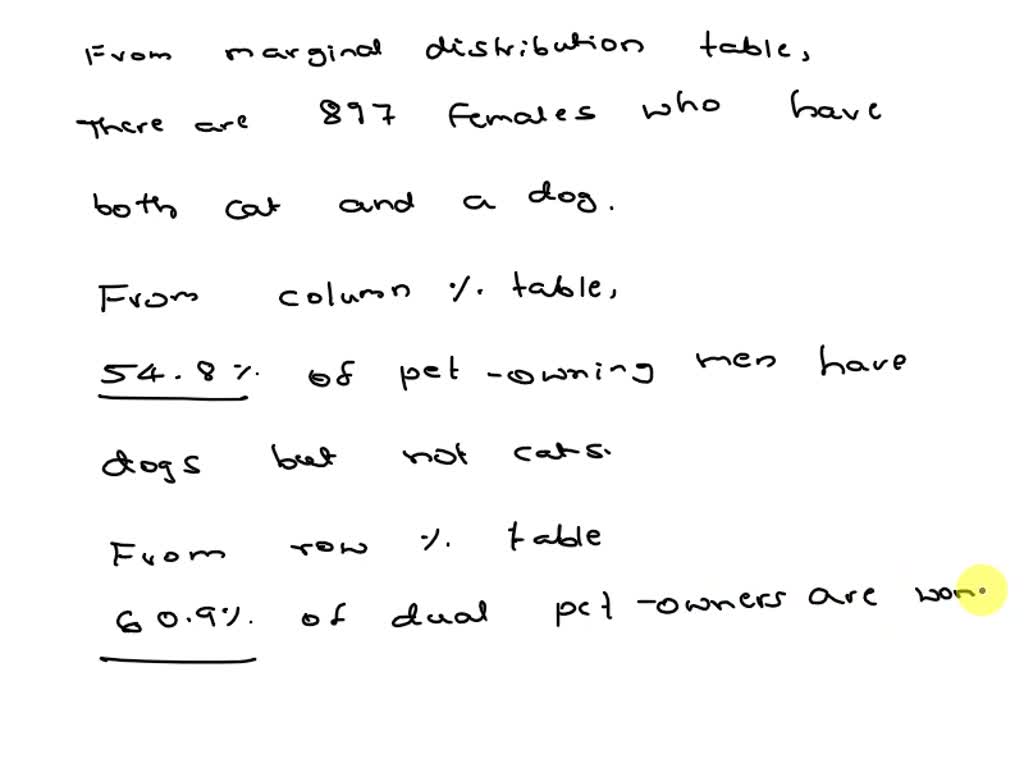 From marginal distribution table,
There are 897 females who have
both cat and a dog.
From column %. table,
54.8%. of pet-owning men have
dogs but not cats.
From row %. table
60.9%. of dual pet-owners are wom